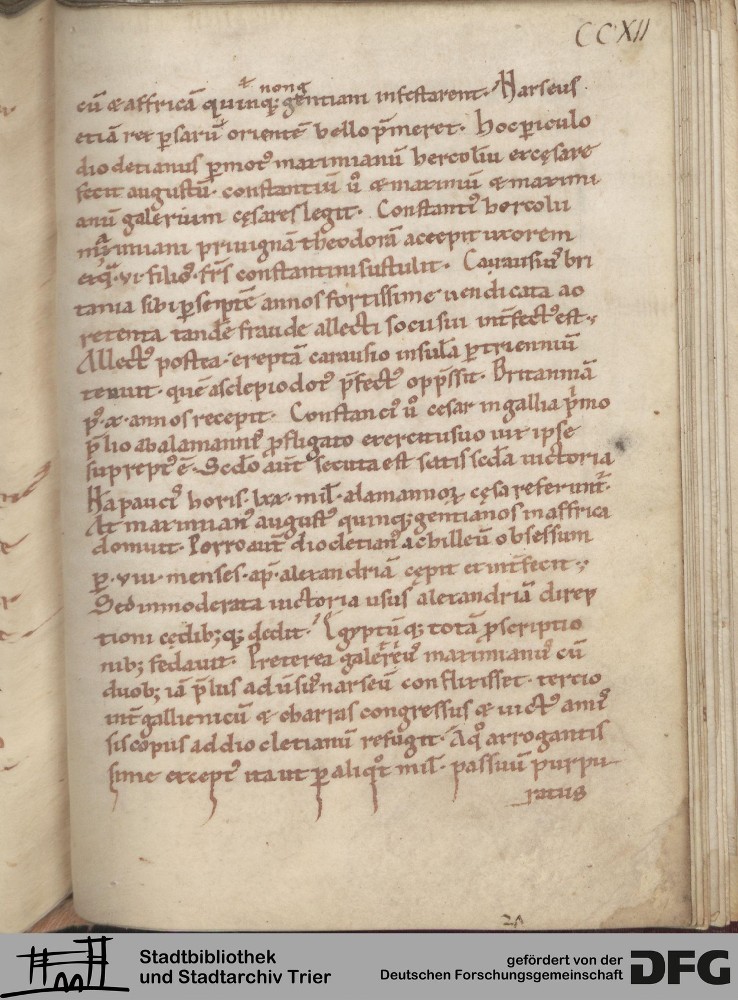 CCXII
nong
cū & affricā quinq; gentiani infestarent. Narseus
etiā rex ꝑsarū orientē bello p̄meret. Hoc periculo
diocletianus ꝑmotꝰ maximianū herculiū ex cęsare
fecit augustū. constantiū ũ & maximū & maximi
anū galerium cęsares legit. Constantiꝰ herculii
maximiani priuignā theodorā accepit uxorem
ex qua .vi. filios. frs̄ constantini sustulit. Carausiꝰ bri
tania sibi ꝑ septē annos fortissime uendicata ac
retenta tandē fraude allecti socii sui int̄fectꝰ est.
Allectꝰ postea ereptā carausio insulā ꝑ trienniū
tenuit. quē asclepiodotꝰ p̄fectꝰ opp̄ssit. Britanniā
pꝰ .x. annos recepit. Constanciꝰ ũ cesar in gallia p̄mo
p̄lio ab alamannis ꝓfligato exercitu suo uix ipse
supreptꝰ ē. Sedo aūt secuta est satis seda uictoria
Nā paucis horis .lxx. mil. alamannoꝝ cęsa referunt̄.
At maximianꝰ augustꝰ quinq; gentianos in affrica
domuit. Porro aūt diocletianꝰ achilleū obsessum
ꝑ .viii. menses. ap̄ alexandriā cępit et int̄fecit.
Sed inmoderata uictoria usus alexandriā direp
tioni cędibꝫ qꝫ dedit. Egyptū qꝫ totā ꝓscriptio
nibꝫ fedauit. Preterea galeriꝰ maximianꝰ cū
duobꝫ iā p̄liis aduersus narseū conflixisset. tercio
int̄ gallienicū & charras congressus & uictꝰ amissis
is copiis ad diocletianū refugit. A quo arrogantis
sime exceptꝰ ita ut ꝑ aliquot mil. passuū purpu
ratus
Stadtbibliothek
und Stadtarchiv Trier
gefördert von der
Deutschen Forschungsgemeinschaft
DFG